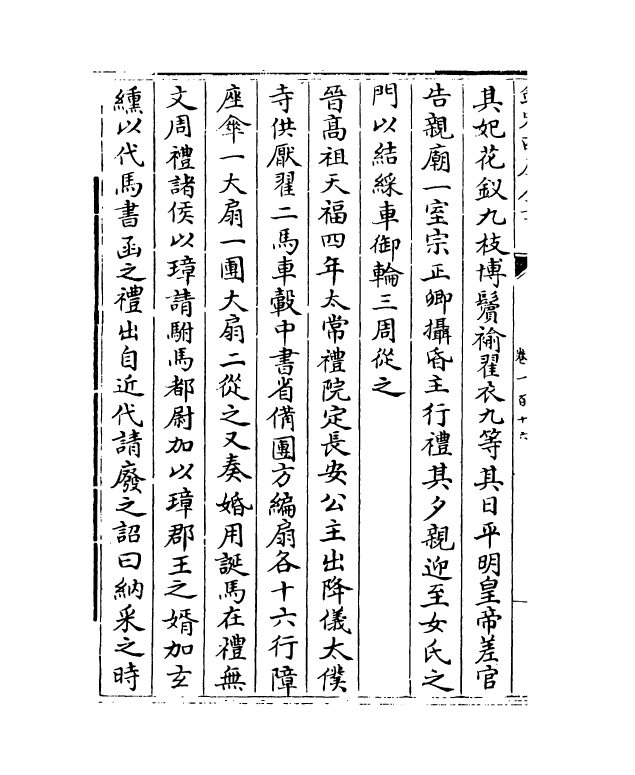 卷一百十六
其妃花釵九枝博鬢褕翟衣九等其日平明皇帝差官
告親廟一室宗正卿攝昏主行禮其夕親迎至女氏之
門以結綵車御輪三周從之
晉髙祖天福四年太常禮院定長安公主出降儀太僕
寺供厭翟二馬車轂中書省備團方編扇各十六行障
座傘一大扇一團大扇二從之又奏婚用誕馬在禮無
文周禮諸侯以璋請駙馬都尉加以璋郡王之婿加玄
纁以代馬書函之禮出自近代請廢之詔曰納采之時